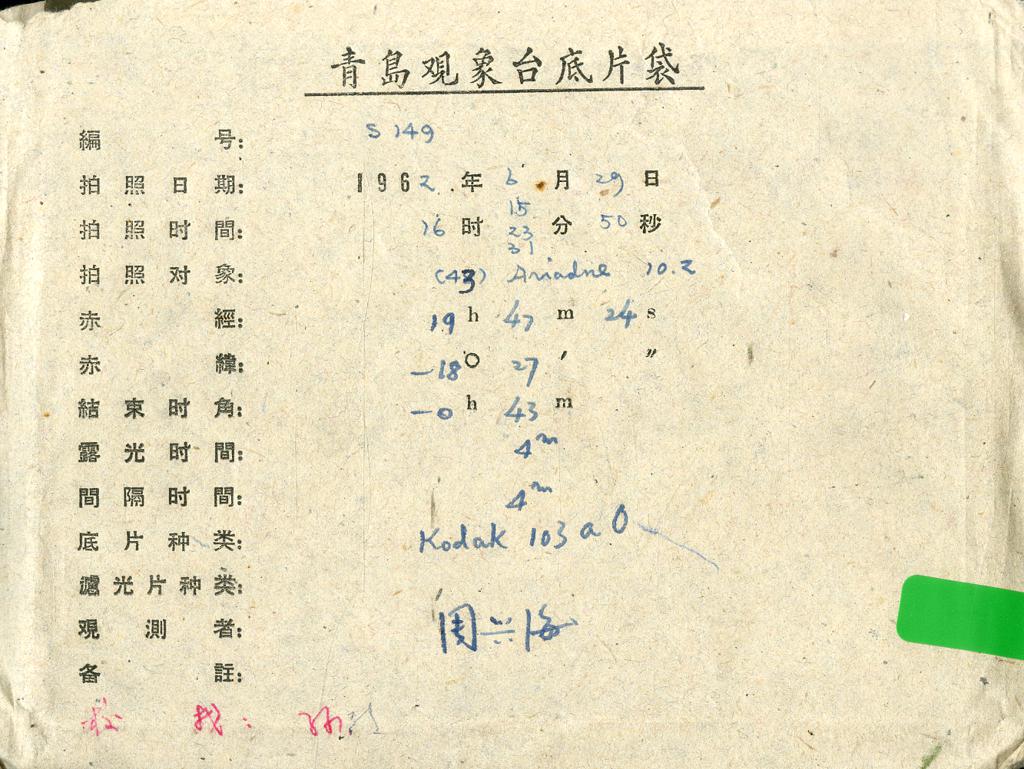 青島观象台底片袋
編号: S 149
拍照日期: 1962年6月29日
15
拍照时間: 16时23分50秒
31
拍照对象: (43) Ariadne 10.2
赤經: 19h 47m 24s
赤緯: -18° 27′ ″
結束时角: -0h 43m
露光时間: 4m
間隔时間: 4m
底片种类: Kodak 103a O
濾光片种类:
观測者: 周兴海
备註:
找: